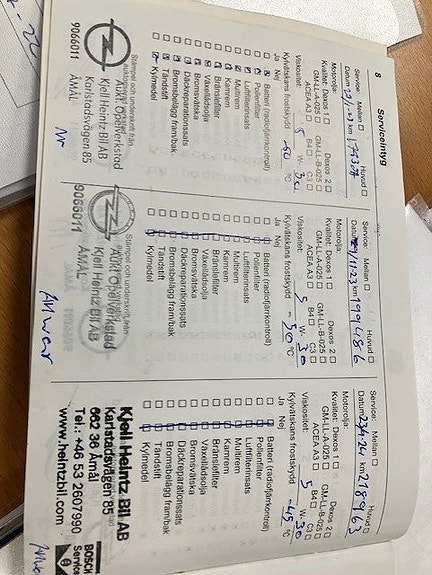 8 Serviceintyg
Service: Mellan ☐ Huvud ☐
km
Motorolja:
Kvalitet: Dexos 1 ☐ Dexos 2 ☐
GM-LL-A-025 ☐ GM-LL-B-025 ☐
ACEA A3 ☐ B4 ☐ C3 ☐
Viskositet: 5 W- 30
Kylvätskans fryspunkt
°C
Ja Nej
Batteri (radiofjärrkontroll)
Pollenfilter
Luftfilterinsats
Multirem
Kamrem
Bränslefilter
Växellådsolja
Bromsvätska
Däckreparationssats
Bromsbelägg fram/bak
Tändstift
Kylmedel
Stämpel och underskrift från
Opelverkstad
Kjell Heintz Bil AB
Karlstadsvägen 85
ÅMÅL
9066011
Service: Mellan ☐ Huvud ☐
km 199486
Motorolja:
Kvalitet: Dexos 1 ☐ Dexos 2 ☐
GM-LL-A-025 ☐ GM-LL-B-025 ☐
ACEA A3 ☐ B4 ☐ C3 ☐
Viskositet: 5 W- 30
-30 °C
Ja Nej
Batteri (radiofjärrkontroll)
Pollenfilter
Luftfilterinsats
Multirem
Kamrem
Bränslefilter
Växellådsolja
Bromsvätska
Däckreparationssats
Bromsbelägg fram/bak
Tändstift
Kylmedel
Stämpel och underskrift från
Opelverkstad
Kjell Heintz Bil AB
ÅMÅL
9066011
Service: Mellan ☐ Huvud ☐
km 218963
Motorolja:
Kvalitet: Dexos 1 ☐ Dexos 2 ☐
GM-LL-A-025 ☐ GM-LL-B-025 ☐
ACEA A3 ☐ B4 ☐ C3 ☐
Viskositet: 5 W- 30
-45 °C
Ja Nej
Batteri (radiofjärrkontroll)
Pollenfilter
Luftfilterinsats
Multirem
Kamrem
Bränslefilter
Växellådsolja
Bromsvätska
Däckreparationssats
Bromsbelägg fram/bak
Tändstift
Kylmedel
Kjell Heintz Bil AB
Karlstadsvägen 85
662 36 Åmål
Tel.: +46 53 2607090
www.heintzbil.com
BOSCH
Service